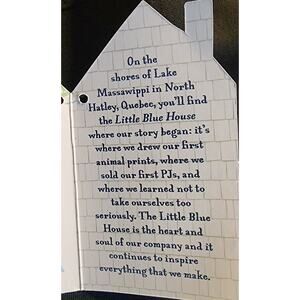 On the
shores of Lake
Massawippi in North
Hatley, Quebec, you'll find
the Little Blue House
where our story began: it's
where we drew our first
animal prints, where we
sold our first PJs, and
where we learned not to
take ourselves too
seriously. The Little Blue
House is the heart and
soul of our company and it
continues to inspire
everything that we make.